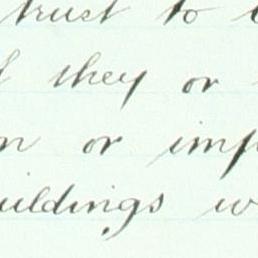 trust to
they or
or imp
uildings w